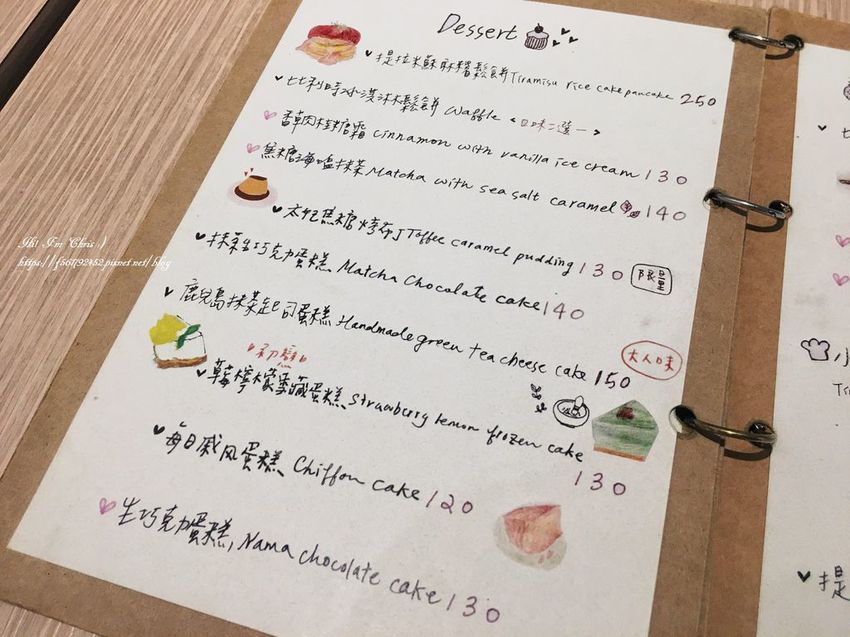 Dessert
提拉米蘇麻糬鬆餅 Tiramisu rice cake pancake 250
比利時冰淇淋鬆餅 Waffle <口味二選一>
香草肉桂糖霜 cinnamon with vanilla ice cream 130
焦糖海塩抹茶 Matcha with sea salt caramel 140
太妃焦糖烤布丁 Toffee caramel pudding 130 限量
抹茶生巧克力蛋糕 Matcha Chocolate cake 140
鹿兒島抹茶起司蛋糕 Handmade green tea cheese cake 150 大人味
初戀
草莓檸檬雪藏蛋糕 Strawberry lemon frozen cake
130
每日戚风蛋糕 Chiffon cake 120
生巧克力蛋糕, Nama chocolate cake 130
Ih! I'm Chris :)
https://f561792482.pixnet.net/blog
提